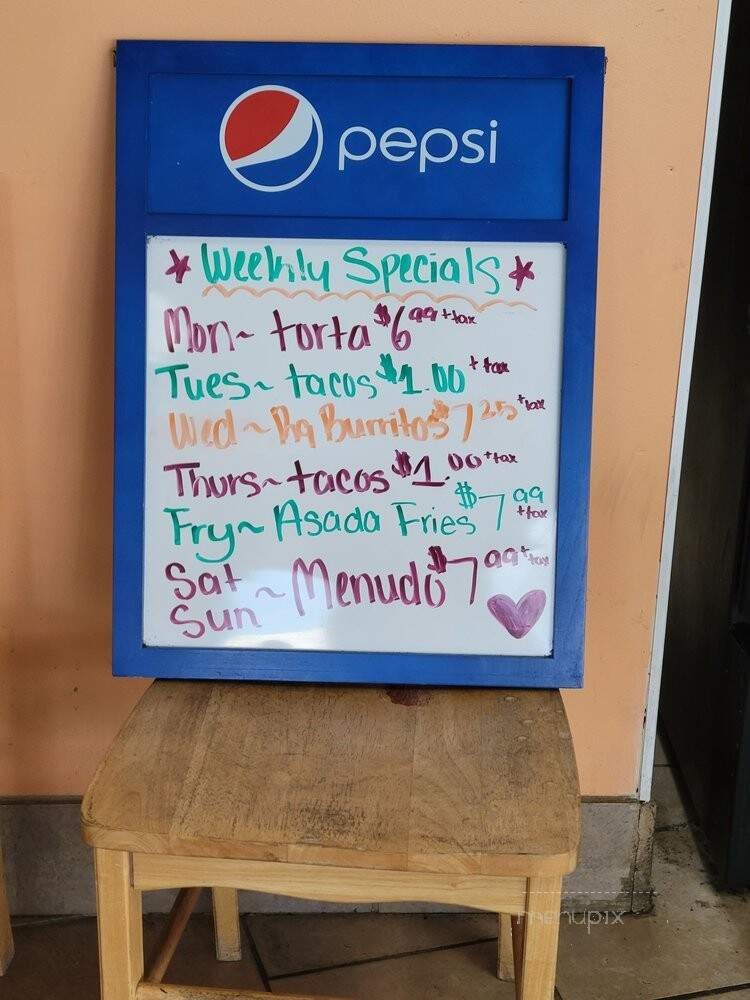 pepsi
* Weekly Specials *
Mon~ torta $6.99 + tax
Tues~ tacos $1.00 + tax
Wed~ Rg Burritos $7.25 + tax
Thurs~ tacos $1.00 + tax
Fry~ Asada Fries $7.99 + tax
Sat
Sun ~ Menudo $7.99 + tax
menupix